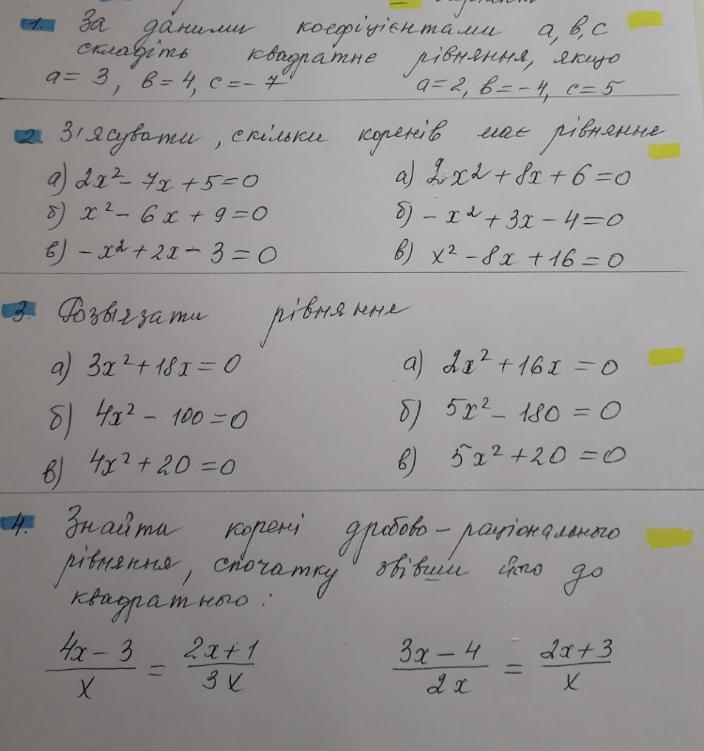 варіант
1. За даними коефіцієнтами a, b, c
складіть квадратне рівняння, якщо
a = 3, b = 4, c = - 7 a = 2, b = - 4, c = 5
2. З'ясувати, скільки коренів має рівняння
а) 2x² - 7x + 5 = 0 а) 2x² + 8x + 6 = 0
б) x² - 6x + 9 = 0 б) - x² + 3x - 4 = 0
в) - x² + 2x - 3 = 0 в) x² - 8x + 16 = 0
3. Розв'язати рівняння
а) 3x² + 18x = 0 а) 2x² + 16x = 0
б) 4x² - 100 = 0 б) 5x² - 180 = 0
в) 4x² + 20 = 0 в) 5x² + 20 = 0
4. Знайти корені дробово - раціонального
рівняння, спочатку звівши його до
квадратного:
4x - 3 / x = 2x + 1 / 3x 3x - 4 / 2x = 2x + 3 / x